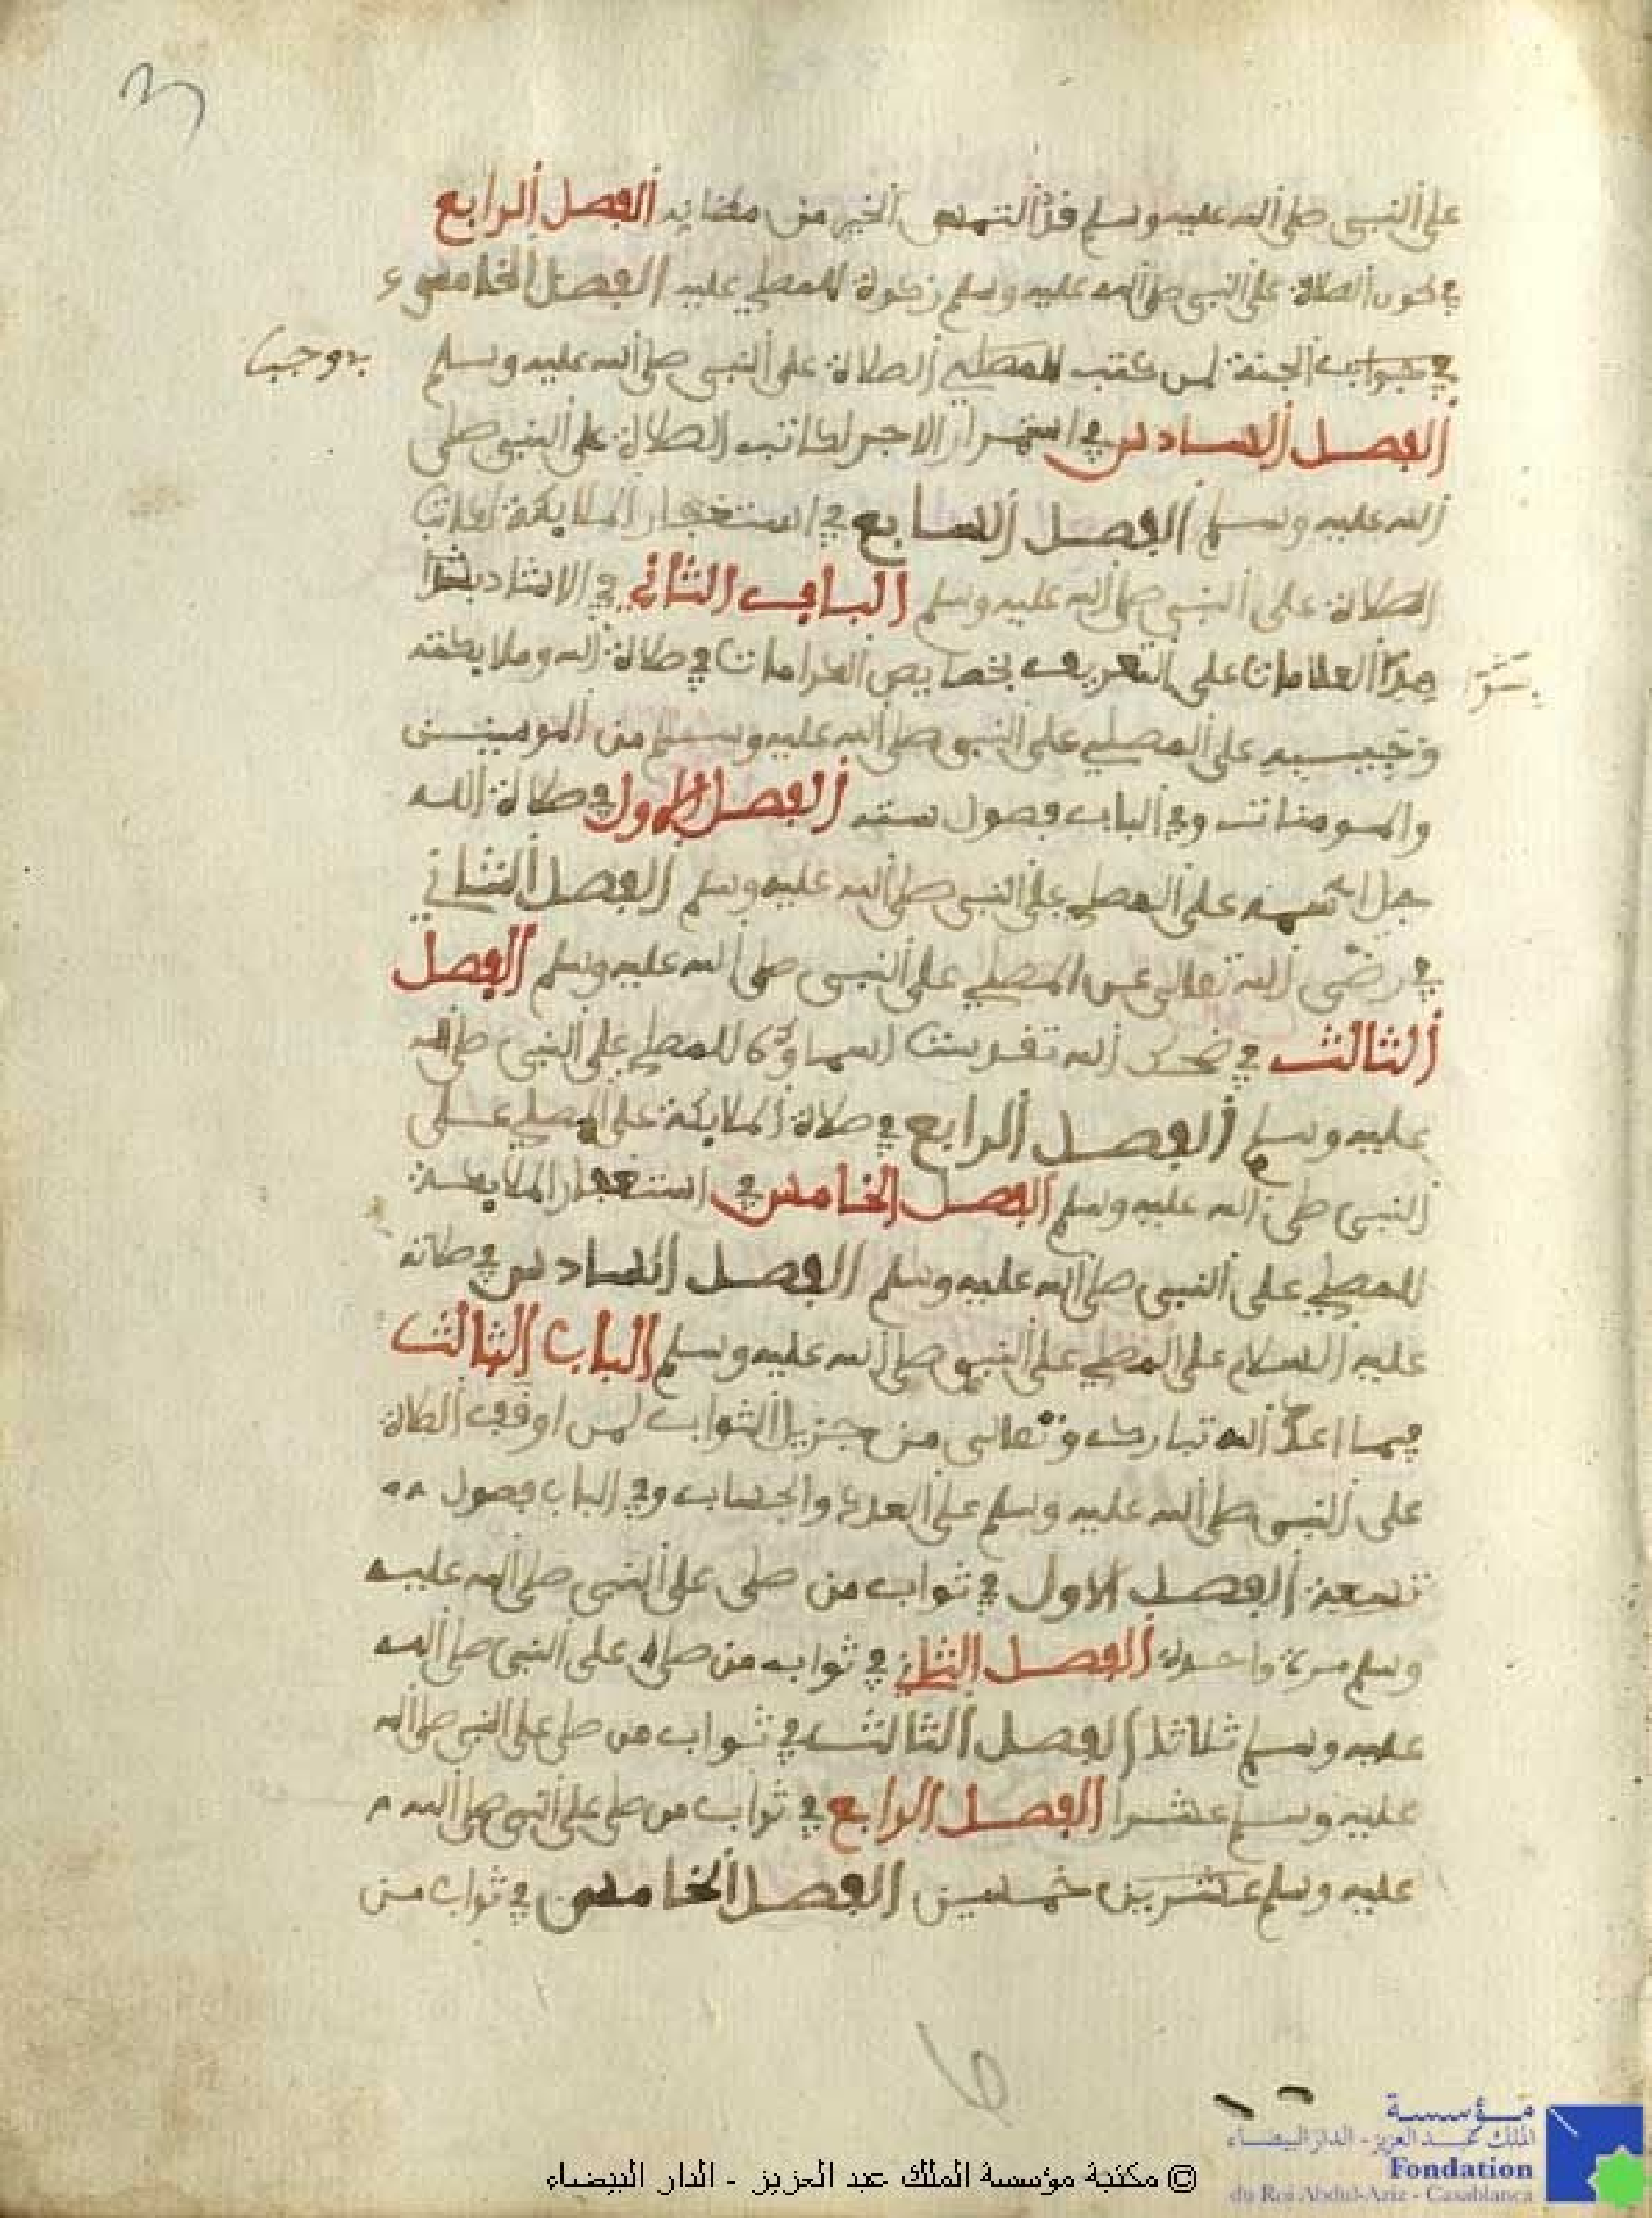 على النبي صلى الله عليه وسلم قد التمس الخير من مضانه الفصل الرابع
في كون الصلاة على النبي صلى الله عليه وسلم زكوة للمصلي عليه الفصل الخامس
في الجنة لمن عقب الصلاة على النبي صلى الله عليه وسلم
الفصل السادس في استمرار الاجر لكاتب الصلاة على النبي صلى
الله عليه وسلم الفصل السابع في استغفار الملايكة لكاتب
الصلاة على النبي صلى الله عليه وسلم الباب الثاني في
هذا العلامات على التعريف بخصايص الكرامات في صلاة الله وملايكته
ونبيه على المصلي على النبي صلى الله عليه وسلم من المومنين
والمومنات وفي الباب فصول ستة الفصل الاول في صلاة الله
جل اسمه على المصلي على النبي صلى الله عليه وسلم الفصل الثاني
في رضى الله تعالى عن المصلي على النبي صلى الله عليه وسلم الفصل
الثالث في ضحك الله تقدست اسماوه للمصلي على النبي صلى الله
عليه وسلم الفصل الرابع في صلاة الملايكة على المصلي على
النبي صلى الله عليه وسلم الفصل الخامس في استغفار الملايكة
للمصلي على النبي صلى الله عليه وسلم الفصل السادس في صلاته
عليه السلام على المصلي على النبي صلى الله عليه وسلم الباب الثالث
فيما اعد الله تبارك وتعالى من جزيل الثواب لمن اوقف الصلاة
على النبي صلى الله عليه وسلم على العدد والحساب وفي الباب فصول
تسعة الفصل الاول في ثواب من صلى على النبي صلى الله عليه
وسلم مرة واحدة الفصل الثاني في ثواب من صلى على النبي صلى الله
عليه وسلم ثلاثا الفصل الثالث في ثواب من صلى على النبي صلى الله
عليه وسلم عشرا الفصل الرابع في ثواب من صلى على النبي صلى الله
عليه وسلم عشرين خمسين الفصل الخامس في ثواب من
مؤسسة
الملك عبد العزيز - الدار البيضاء
Fondation
du Roi Abdul-Aziz - Casablanca
© مكتبة مؤسسة الملك عبد العزيز - الدار البيضاء